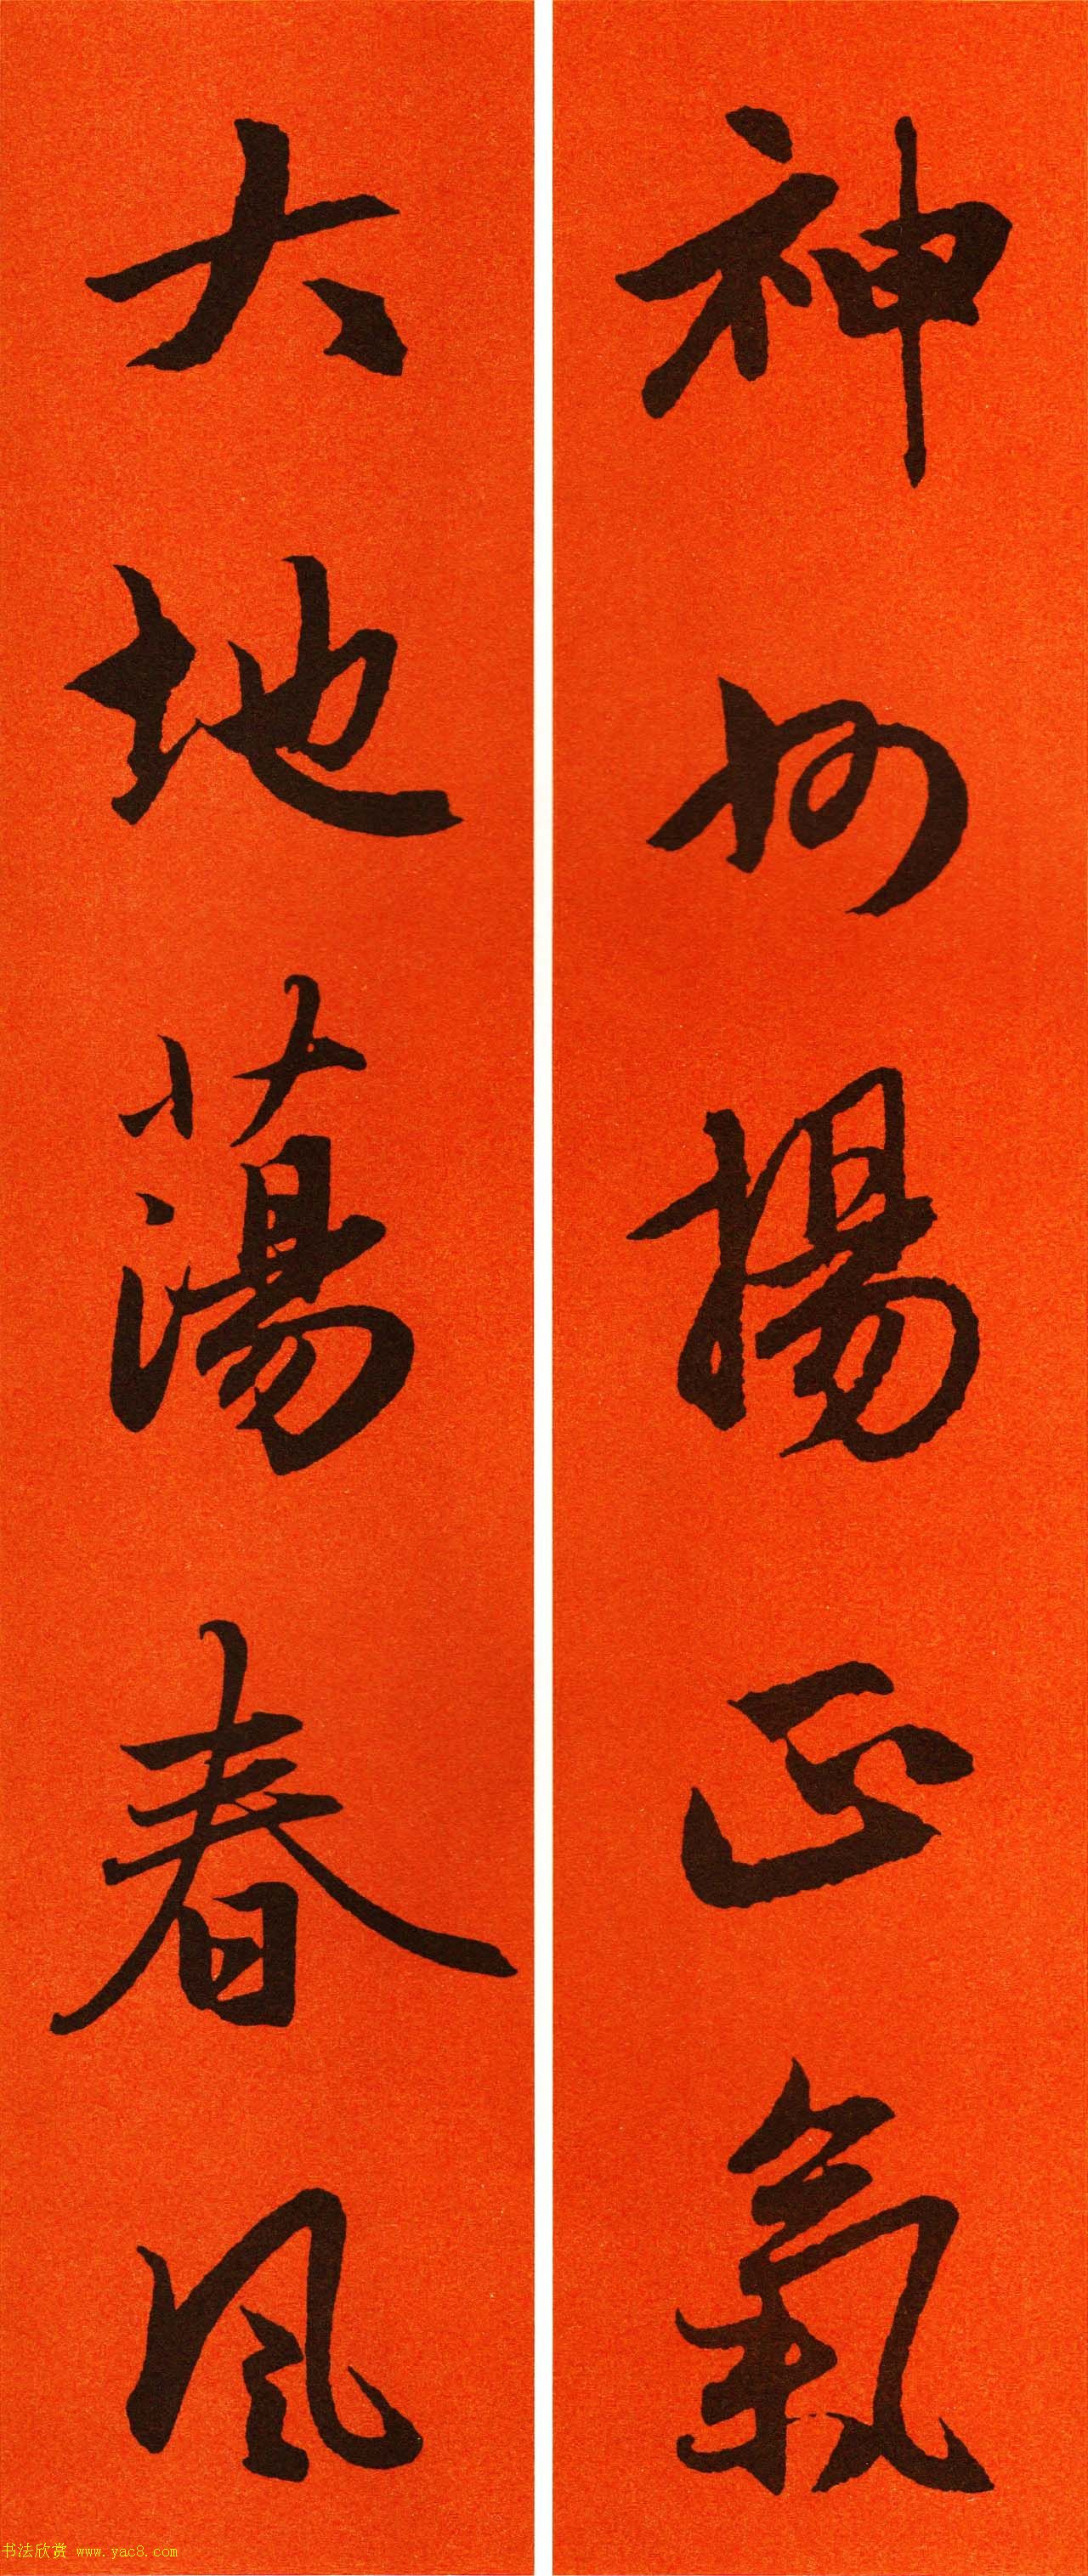 神州揚正氣
大地蕩春风
书法欣赏 www.yac8.com